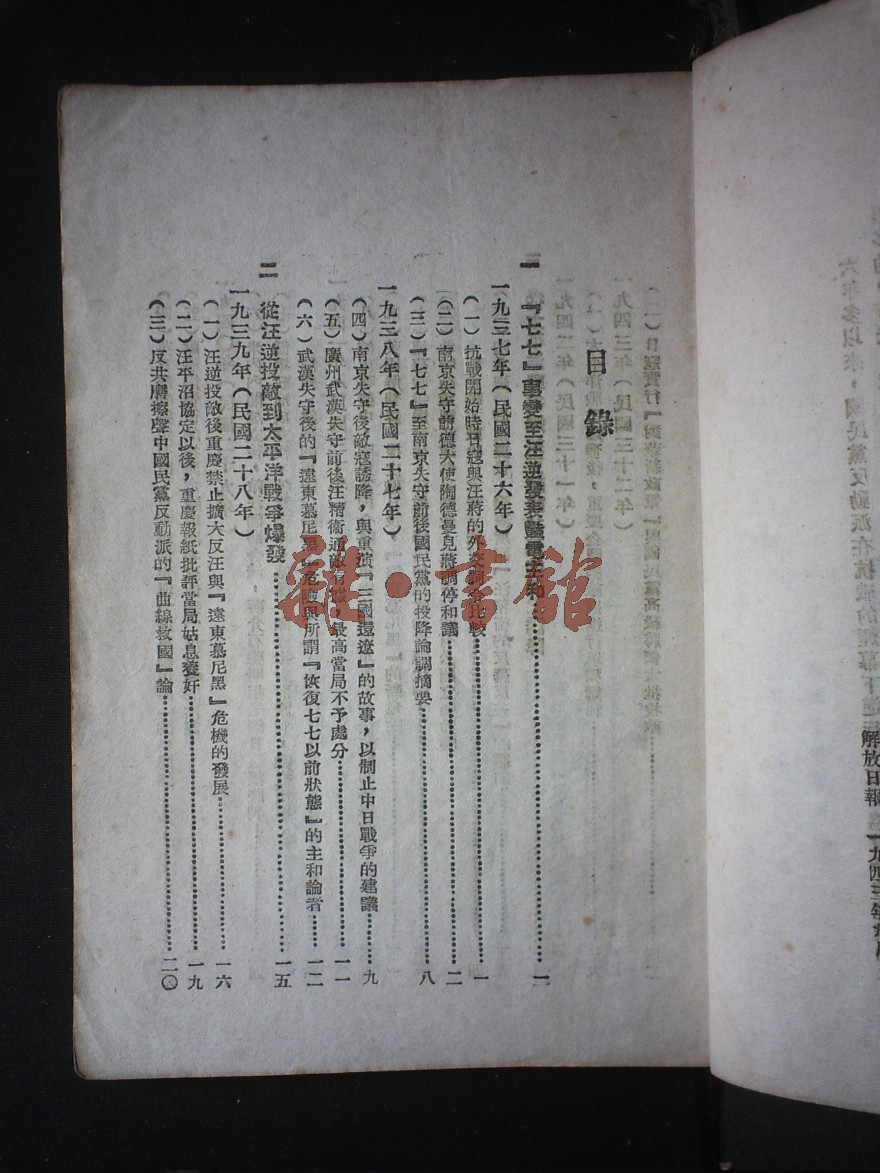 解放日報
目錄
一 『七七』事變至汪逆發表艷電主和……一
一九三七年（民國二十六年）
（一）抗戰開始時日寇與汪蔣的外交……一
（二）南京失守前德大使陶德曼見蔣調停和議……二
（三）『七七』至南京失守前後國民黨的投降論調摘要……八
一九三八年（民國二十七年）
（四）南京失守後敵寇誘降，與重演『三國還遼』的故事，以制止中日戰爭的建議……九
（五）廣州武漢失守前後汪精衛通敵有據，最高當局不予處分……一一
（六）武漢失守後的『遠東慕尼黑』危險與所謂『恢復七七以前狀態』的主和論者……一二
二 從汪逆投敵到太平洋戰爭爆發……一五
一九三九年（民國二十八年）
（一）汪逆投敵後重慶禁止擴大反汪與『遠東慕尼黑』危機的發展……一六
（二）汪平沼協定以後，重慶報紙批評當局姑息養奸……一九
（三）反共磨擦聲中國民黨反動派的『曲線救國』論……二〇
雜·書館